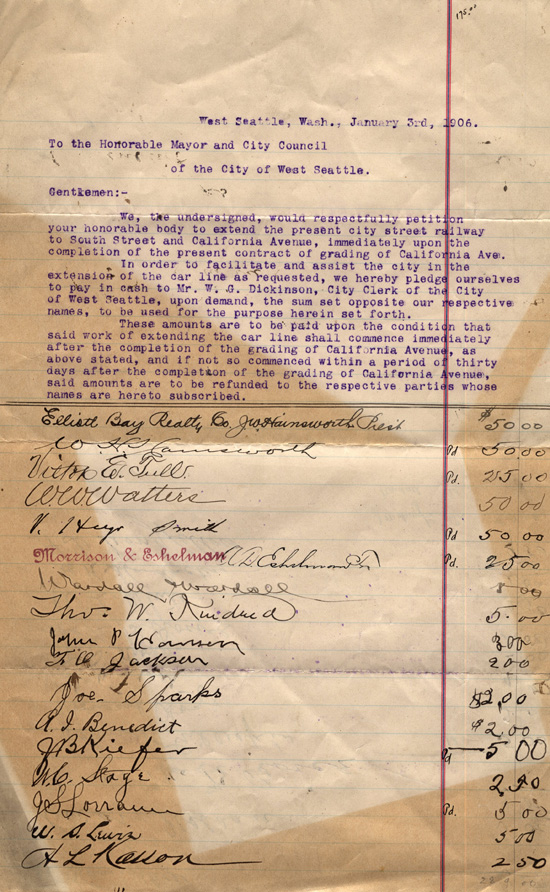 175.00
West Seattle, Wash., January 3rd, 1906.
To the Honorable Mayor and City Council
of the City of West Seattle.
Gentlemen:-
We, the undersigned, would respectfully petition
your honorable body to extend the present city street railway
to South Street and California Avenue, immediately upon the
completion of the present contract of grading of California Ave.
In order to facilitate and assist the city in the
extension of the car line as requested, we hereby pledge ourselves
to pay in cash to Mr. W. G. Dickinson, City Clerk of the City
of West Seattle, upon demand, the sum set opposite our respective
names, to be used for the purpose herein set forth.
These amounts are to be paid upon the condition that
said work of extending the car line shall commence immediately
after the completion of the grading of California Avenue, as
above stated, and if not so commenced within a period of thirty
days after the completion of the grading of California Avenue,
said amounts are to be refunded to the respective parties whose
names are hereto subscribed.
Elliott Bay Realty Co. J W Hainsworth Prest $50 00
Hainsworth Pd 50.00
Victor E. Tull. Pd. 25 00
W.W. Watters 50 00
V. Smith Pd. 50 00
Morrison & Eshelman Eshelman Pd. 25 00
Wardall & Wardall 5 00
Thos W. Kindred 5.00
John P Harrison
Jackson 2 00
Joe Sparks $2,00
A. I. Benedict $2,00
J B Kiefer Pd 5 00
W.C. Stage 2 50
J S Lorraine Pd. 5 00
W. S. Lewis 5 00
A L Kasson 2 50